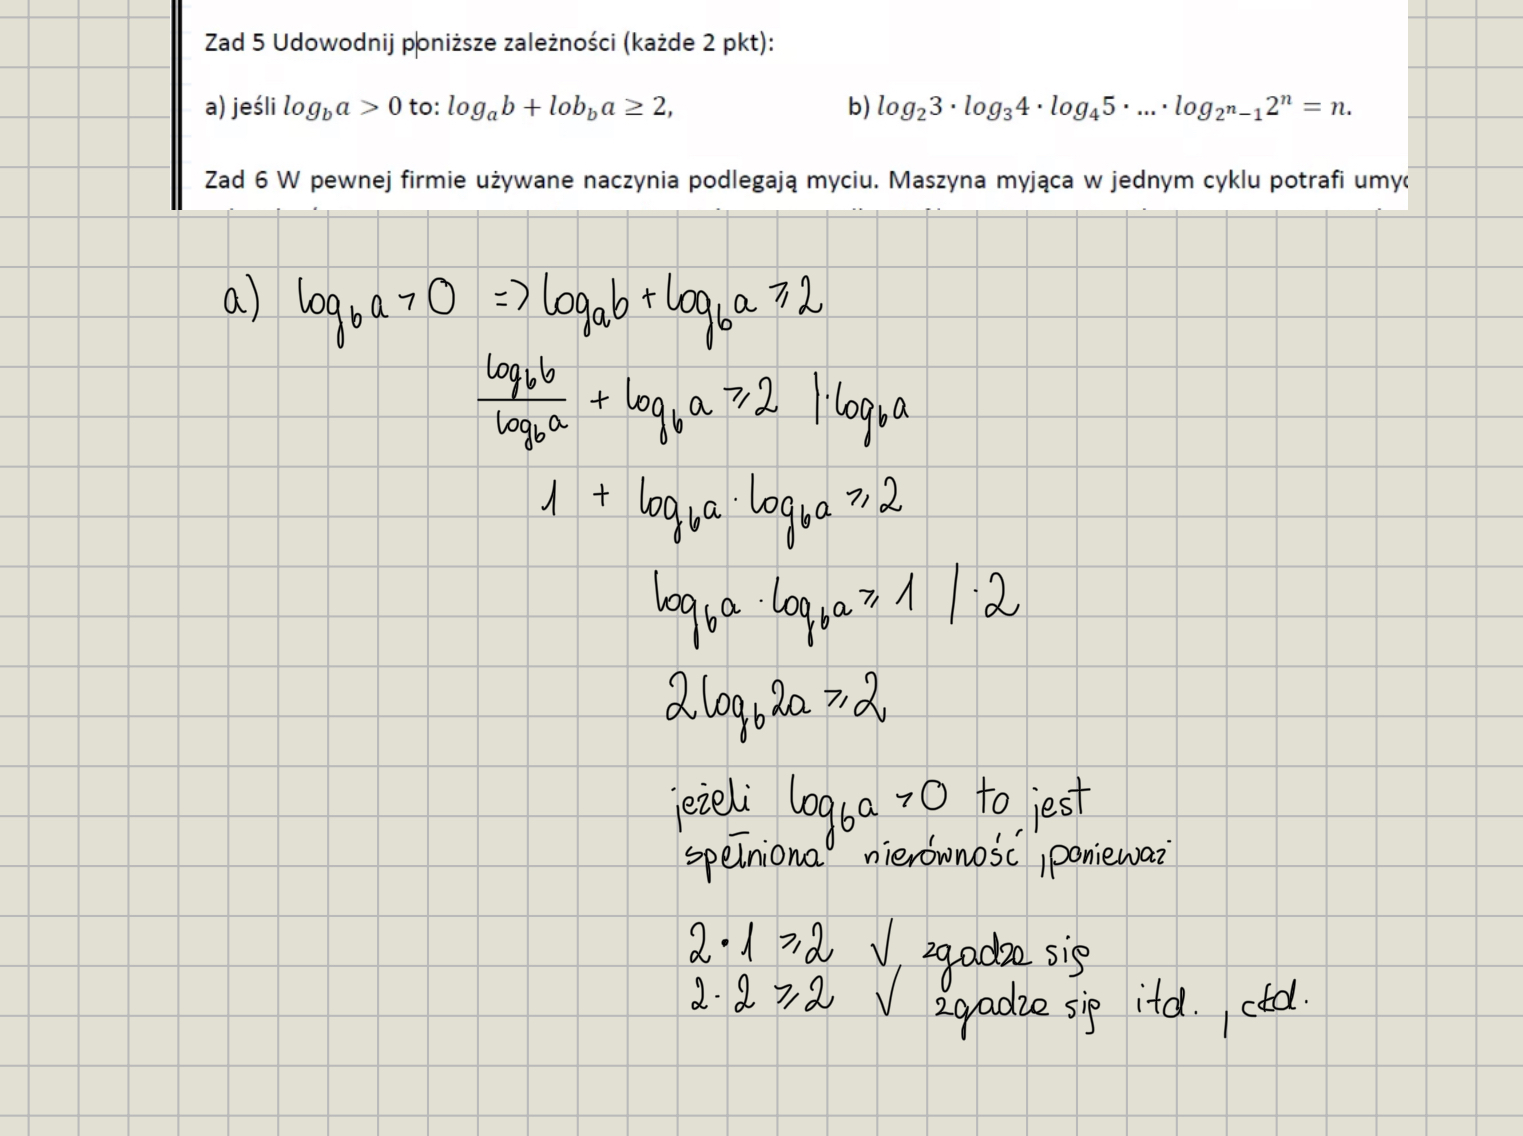 Zad 5 Udowodnij poniższe zależności (każde 2 pkt):
a) jeśli log_b a > 0 to: log_a b + lob_b a ≥ 2, b) log_2 3 · log_3 4 · log_4 5 · ... · log_{2^n−1} 2^n = n.
Zad 6 W pewnej firmie używane naczynia podlegają myciu. Maszyna myjąca w jednym cyklu potrafi umyć
a) log_b a > 0 => log_a b + log_b a ≥ 2
log_b b / log_b a + log_b a ≥ 2 |· log_b a
1 + log_b a · log_b a ≥ 2
log_b a · log_b a ≥ 1 / · 2
2 log_b 2a ≥ 2
jeżeli log_b a > 0 to jest
spełniona nierówność, ponieważ
2 · 1 ≥ 2 √ zgadza się
2 · 2 ≥ 2 √ zgadza się itd. , ckd.